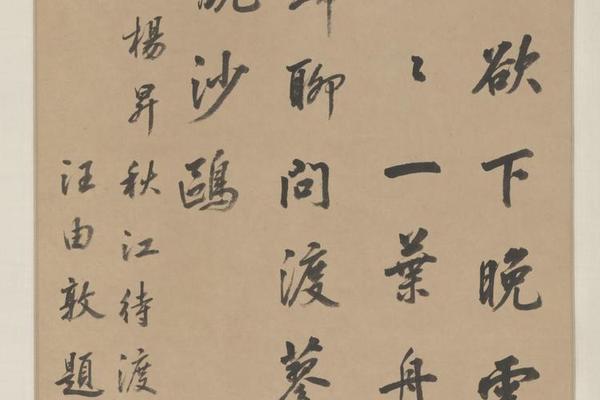 欲下晚
〻一葉舟
聊問渡蓼
沙鷗
楊昇秋江待渡
汪由敦題